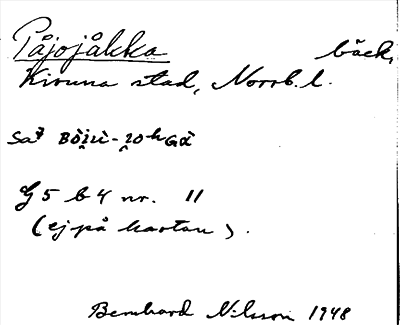 Påjojåkka bäck,
Kiruna stad, Norrb. l.
G5 b 4 nr. 11
(ej på kartan).
Bernhard Nilsson 1948